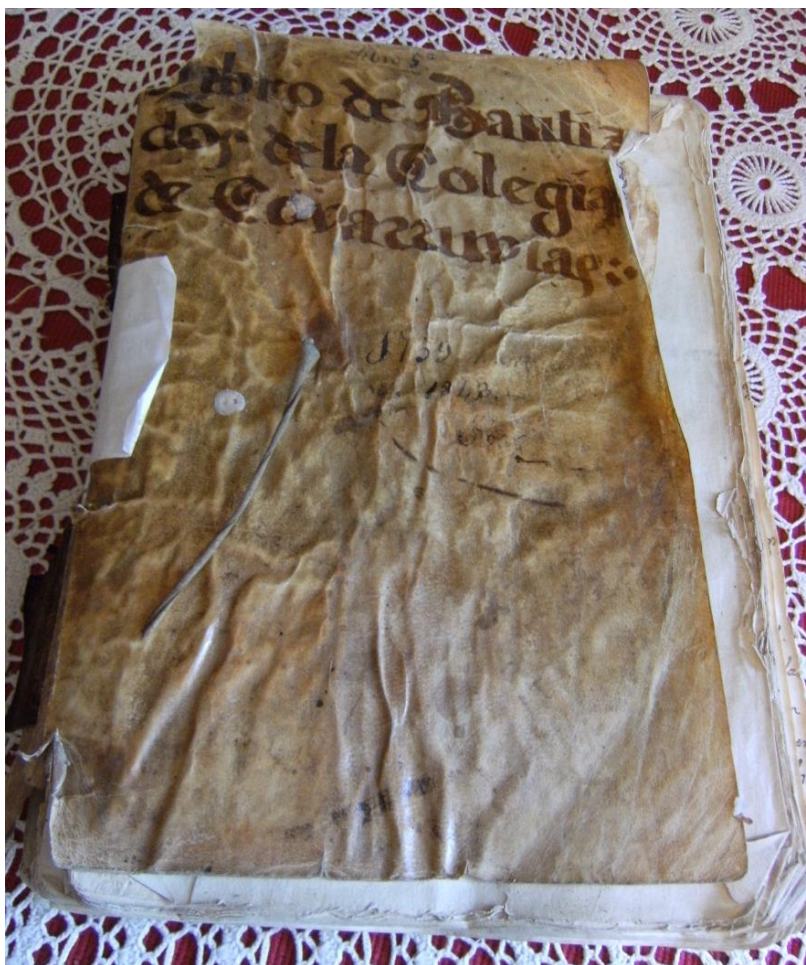 Libro 5º
Libro de Bautiz
dos de la Colegia
de Covarruvias
1739
1848